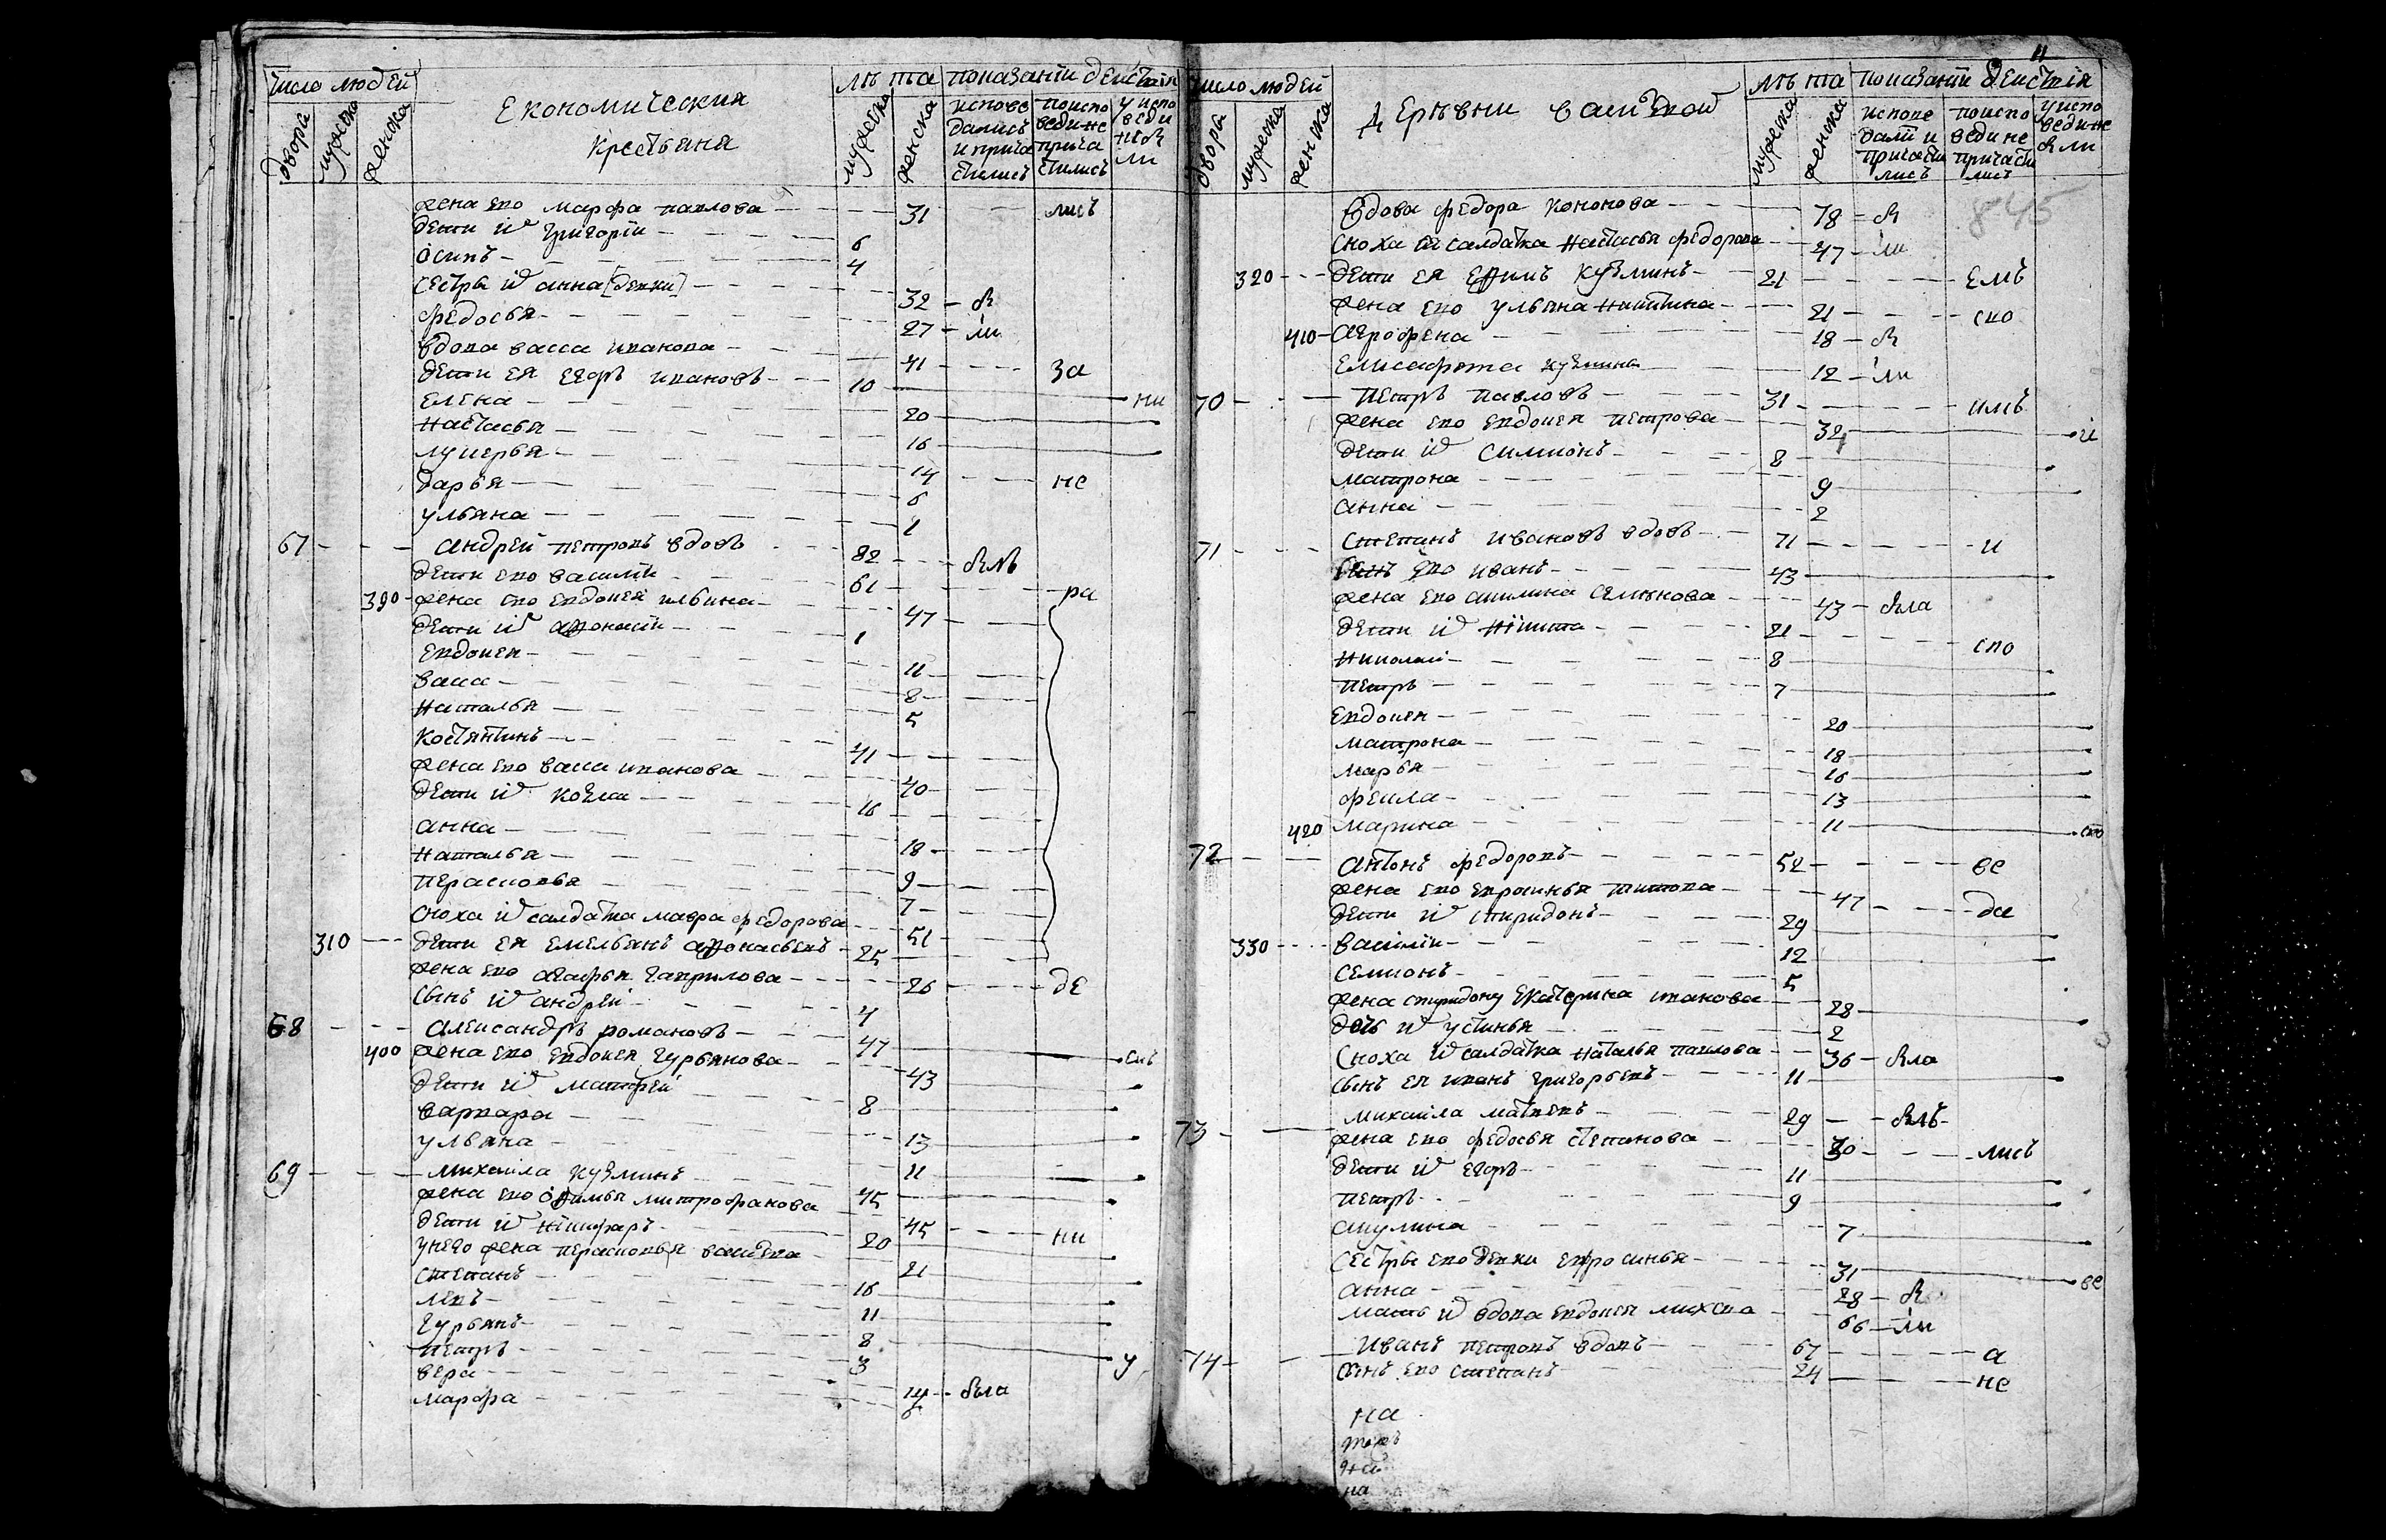 число людей
лѣта показанïи деиствïя
двора мужеска женска
Економическия
крестьяня
мужеска женска
испове дались и прича стились
поиспо веди не прича стились
жена ево марфа павлова 31 лись
дети их григорïи 6
осипъ 4
сестры их анна [девки] 32 бы
федосья 27 ли
вдова васса иванова 41 за
дети ея егоръ ивановъ 10 ни
елена 20
настасья 16
лукерья 14 не
дарья 6
ульяна 1
67 андрей петровъ вдовъ 82 былъ
дети ево василïи 61 ра
390 жена ево евдокея ильина 47
дети их афонасïи 1
евдокея 11
васса 8
наталья 5
костянтинъ 41
жена ево васса иванова 40
дети их козма 16
анна 18
наталья 9
перасковья 7
сноха их салдатка мавра федорова 51
310 дети ея емельянъ афонасьевъ 25
жена ево агафья гаврилова 26 де
сынъ их андрей 4
68 александръ романовъ 47
400 жена ево евдокея гурьянова 43
дети их матфей 8
варвара 13
ульяна 11
69 михаила кузминъ 45
жена ево офимья митрофанова 45 ни
дети их никифаръ 20
унего жена перасковья 21
степанъ 16
левъ 11
гурьянъ 8
петръ 3 у
вера 14 была
марфа 6
11
число людей
лѣта показанïи деиствïя
двора мужеска женска
деревни
мужеска женска
испове дали и причасти лись
поиспо веди не причасти лись
845
вдова федора кононова 78 бы
сноха ей салдатка настасья федорова 47 ли
320 дети ея ефимъ кузминъ 21 емъ
жена ево ульяна никитина 21 сво
410 агрофена 18 бы
елисафета кузмина 12 ли
70 петръ павловъ 31 имъ
жена ево евдокея петрова 32 й
дети их симионъ 8
матрона 9
анна 2
71 степанъ ивановъ вдовъ 71 и
сынъ ево иванъ 43
жена ево акилина семенова 43 была
дети их никита 21 сво
николай 8
петръ 7
евдокея 20
матрона 18
марья 16
фекла 13
420 марина 11
72 антонъ федоровъ 52 ве
жена ево евросинья титова 47 де
дети их спиридонъ 29
330 василïи 12
семионъ 5
жена спиридону екатерина иванова 28
дочь их устинья 2
сноха их салдатка наталья павлова 36 была
сынъ ея иванъ григорьевъ 11
73 михаила матвевъ 29 былъ
жена ево федосья степанова 30 лись
дети их егоръ 11
петръ 9
акулина 7
сестры ево девки ефросинья 31 ве
анна 28 бы
мать их вдова евдокея 66 ли
74 иванъ петровъ вдовъ 67 а
сынъ ево степанъ 24 не
на
на